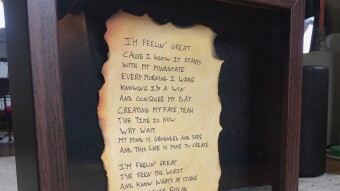 I'M FEELIN' GREAT
CAUSE I KNOW IT STARTS
WITH MY MINDSTATE
EVERY MORNING I WAKE
KNOWING I'M A WIN
AND CONQUER MY DAY
CREATING MY FATE, YEAH
THE TIME IS NOW
WHY WAIT
MY MIND IS GROUNDED AND SAFE
AND THIS LIFE IS MINE TO CREATE

I'M FEELIN' GREAT
I'VE SEEN THE WORST
AND KNOW WHAT'S AT STAKE